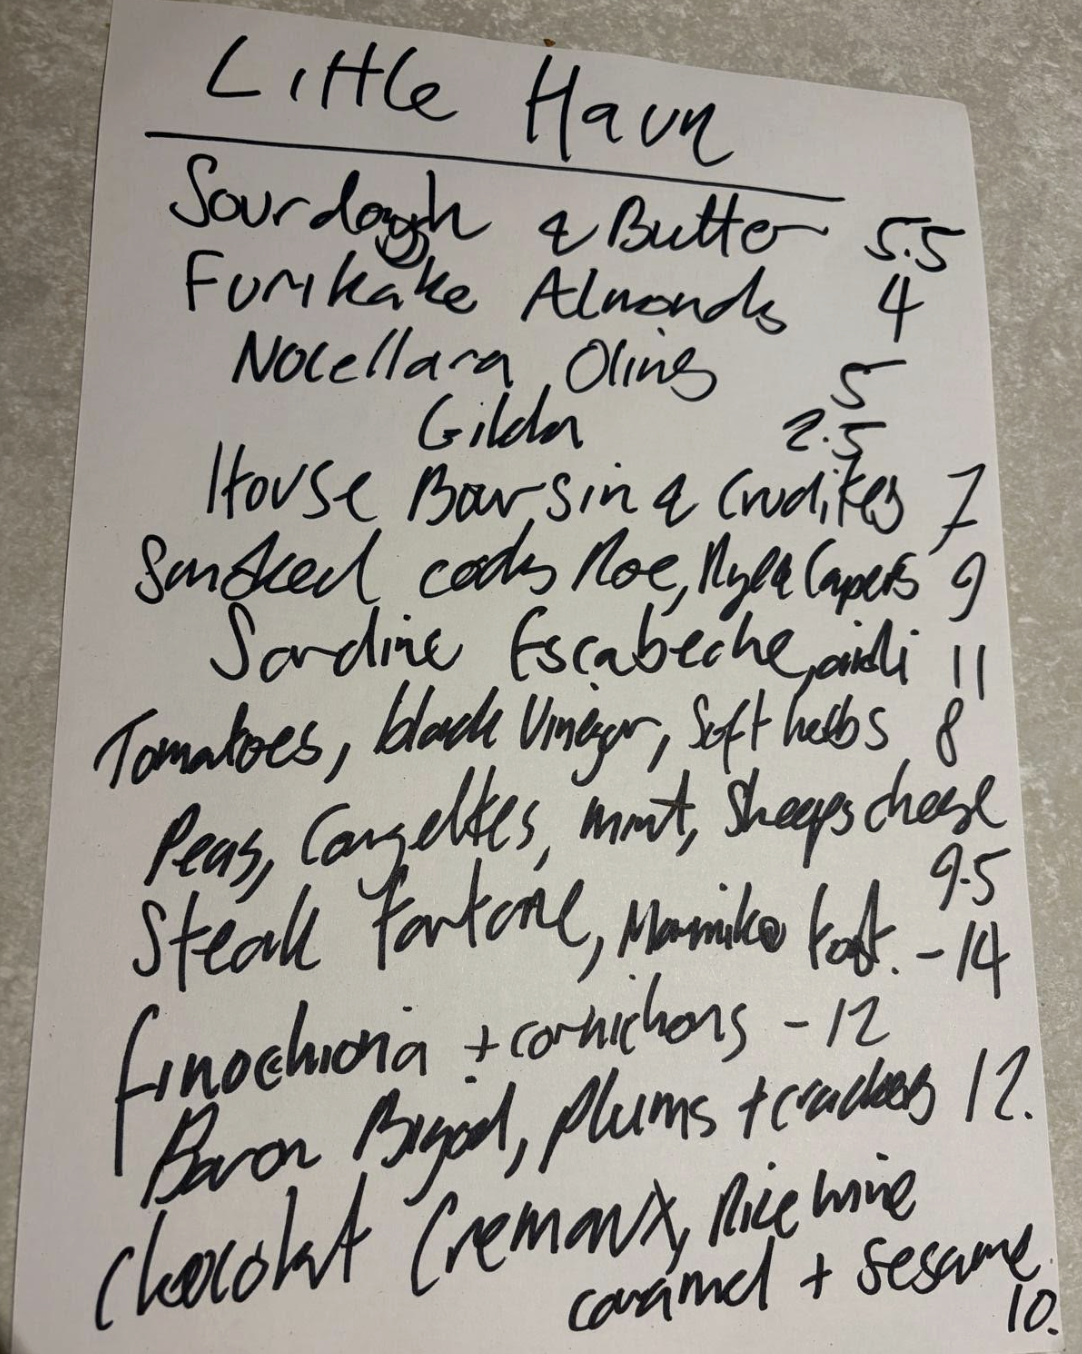 Little Haun
Sourdough & Butter 5.5
Furikake Almonds 4
Nocellara Olives 5
Gilda 2.5
House Boursin & Crudites 7
Smoked cods Roe, Rye & Capers 9
Sardine Escabeche, aioli 11
Tomatoes, black Vinegar, Soft herbs 8
Peas, Courgettes, mint, Sheeps cheese
9.5
Steak tartare, toast. - 14
finochiona + cornichons - 12
Baron Bigod, plums + crackers 12.
Chocolat Cremaux, Rice wine
caramel + Sesame.
10.